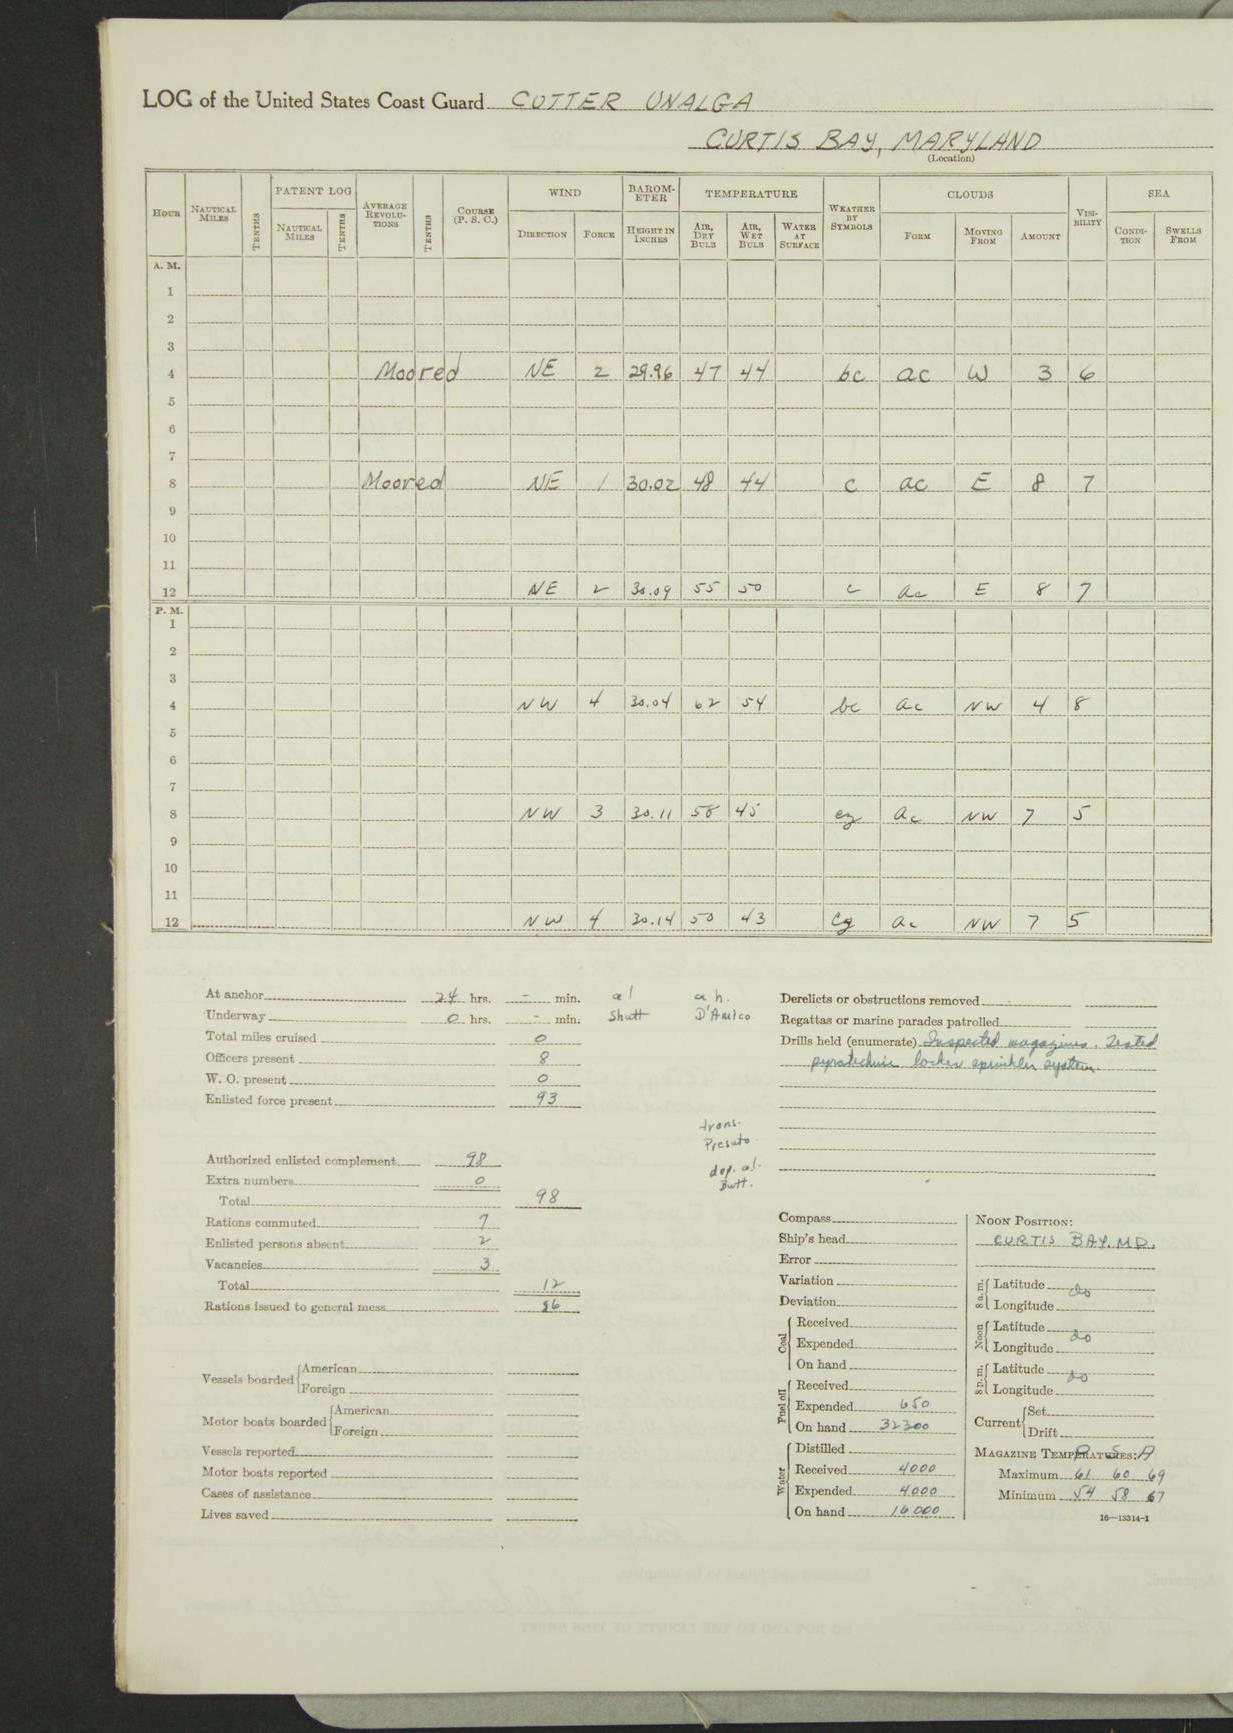 LOG of the United States Coast Guard CUTTER UNALGA
CURTIS BAY, MARYLAND
(Location)
HOUR NAUTICAL MILES TENTHS PATENT LOG NAUTICAL MILES TENTHS AVERAGE REVOLU-TIONS TENTHS COURSE (P. S. C.) WIND DIRECTION FORCE BAROM-ETER HEIGHT IN INCHES TEMPERATURE AIR, DRY BULB AIR, WET BULB WATER AT SURFACE WEATHER BY SYMBOLS CLOUDS FORM MOVING FROM AMOUNT VISI-BILITY SEA CONDI-TION SWELLS FROM
A. M.
1
2
3
4 Moored NE 2 29.96 47 44 bc ac W 3 6
5
6
7
8 Moored NE 1 30.02 48 44 c ac E 8 7
9
10
11
12 NE 2 30.09 55 50 c ac E 8 7
P. M.
1
2
3
4 NW 4 30.04 62 54 bc ac NW 4 8
5
6
7
8 NW 3 30.11 58 45 cz ac NW 7 5
9
10
11
12 NW 4 30.14 50 43 cg ac NW 7 5
At anchor 24 hrs. - min.
Underway 0 hrs. - min.
Total miles cruised 0
Officers present 8
W. O. present 0
Enlisted force present 93
Authorized enlisted complement 98
Extra numbers 0
Total 98
Rations commuted 7
Enlisted persons absent 2
Vacancies 3
Total 12
Rations issued to general mess 86
Vessels boarded American
Foreign
Motor boats boarded American
Foreign
Vessels reported
Motor boats reported
Cases of assistance
Lives saved
a l
Shutt
a h.
D'Amico
trans.
Presuto
dep. al.
Butt.
Derelicts or obstructions removed
Regattas or marine parades patrolled
Drills held (enumerate) Inspected magazines. Tested
pyrotechnic locker sprinkler system.
Compass
Ship's head
Error
Variation
Deviation
Coal Received
Expended
On hand
Fuel oil Received
Expended 650
On hand 32300
Water Distilled
Received 4000
Expended 4000
On hand 16000
NOON POSITION:
CURTIS BAY. MD.
8 a. m. Latitude do
Longitude
Noon Latitude do
Longitude
8 p. m. Latitude do
Longitude
Current Set
Drift
MAGAZINE TEMPERATURES: P S A
Maximum 61 60 69
Minimum 54 58 67
16—13314-1